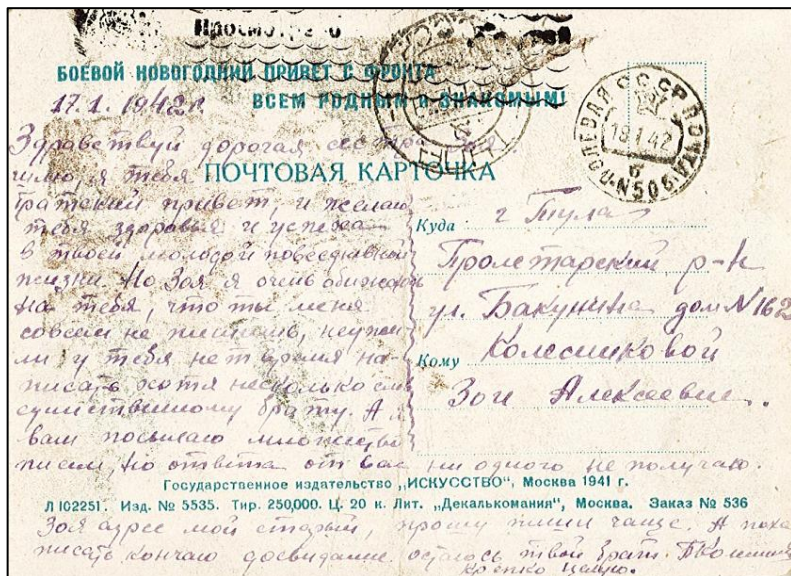 Просмотрено
БОЕВОЙ НОВОГОДНИЙ ПРИВЕТ С ФРОНТА
ВСЕМ РОДНЫМ и ЗНАКОМЫМ!
17.1.1942 г.
Здравствуй дорогая сестра
шлю я тебя
братский привет, и желаю
тебя здоровья и успеха
в твоей молодой повседневной
жизни. Но Зоя я очень обижаюсь
на тебя, что ты меня
совсем не пишешь, неуже-
ли у тебя нет время на-
писать хотя несколько слов
единственному брату. А я
вам посылаю множество
писем, но ответа от вас ни одного не получаю.
ПОЧТОВАЯ КАРТОЧКА
ПОЛЕВАЯ ПОЧТА СССР
18.1.42
б
N506
Куда г Тула
Пролетарский р-н
ул. Бакунина дом N 162
Кому Колесниковой
Зои Алексеевне.
Государственное издательство „ИСКУССТВО", Москва 1941 г.
Л 102251. Изд. № 5535. Тир. 250,000. Ц. 20 к. Лит. „Декалькомания", Москва. Заказ № 536
Зоя адрес мой старый, прошу пиши чаще. А пока
писать кончаю досвидание остаюсь твой брат.
крепко целую.